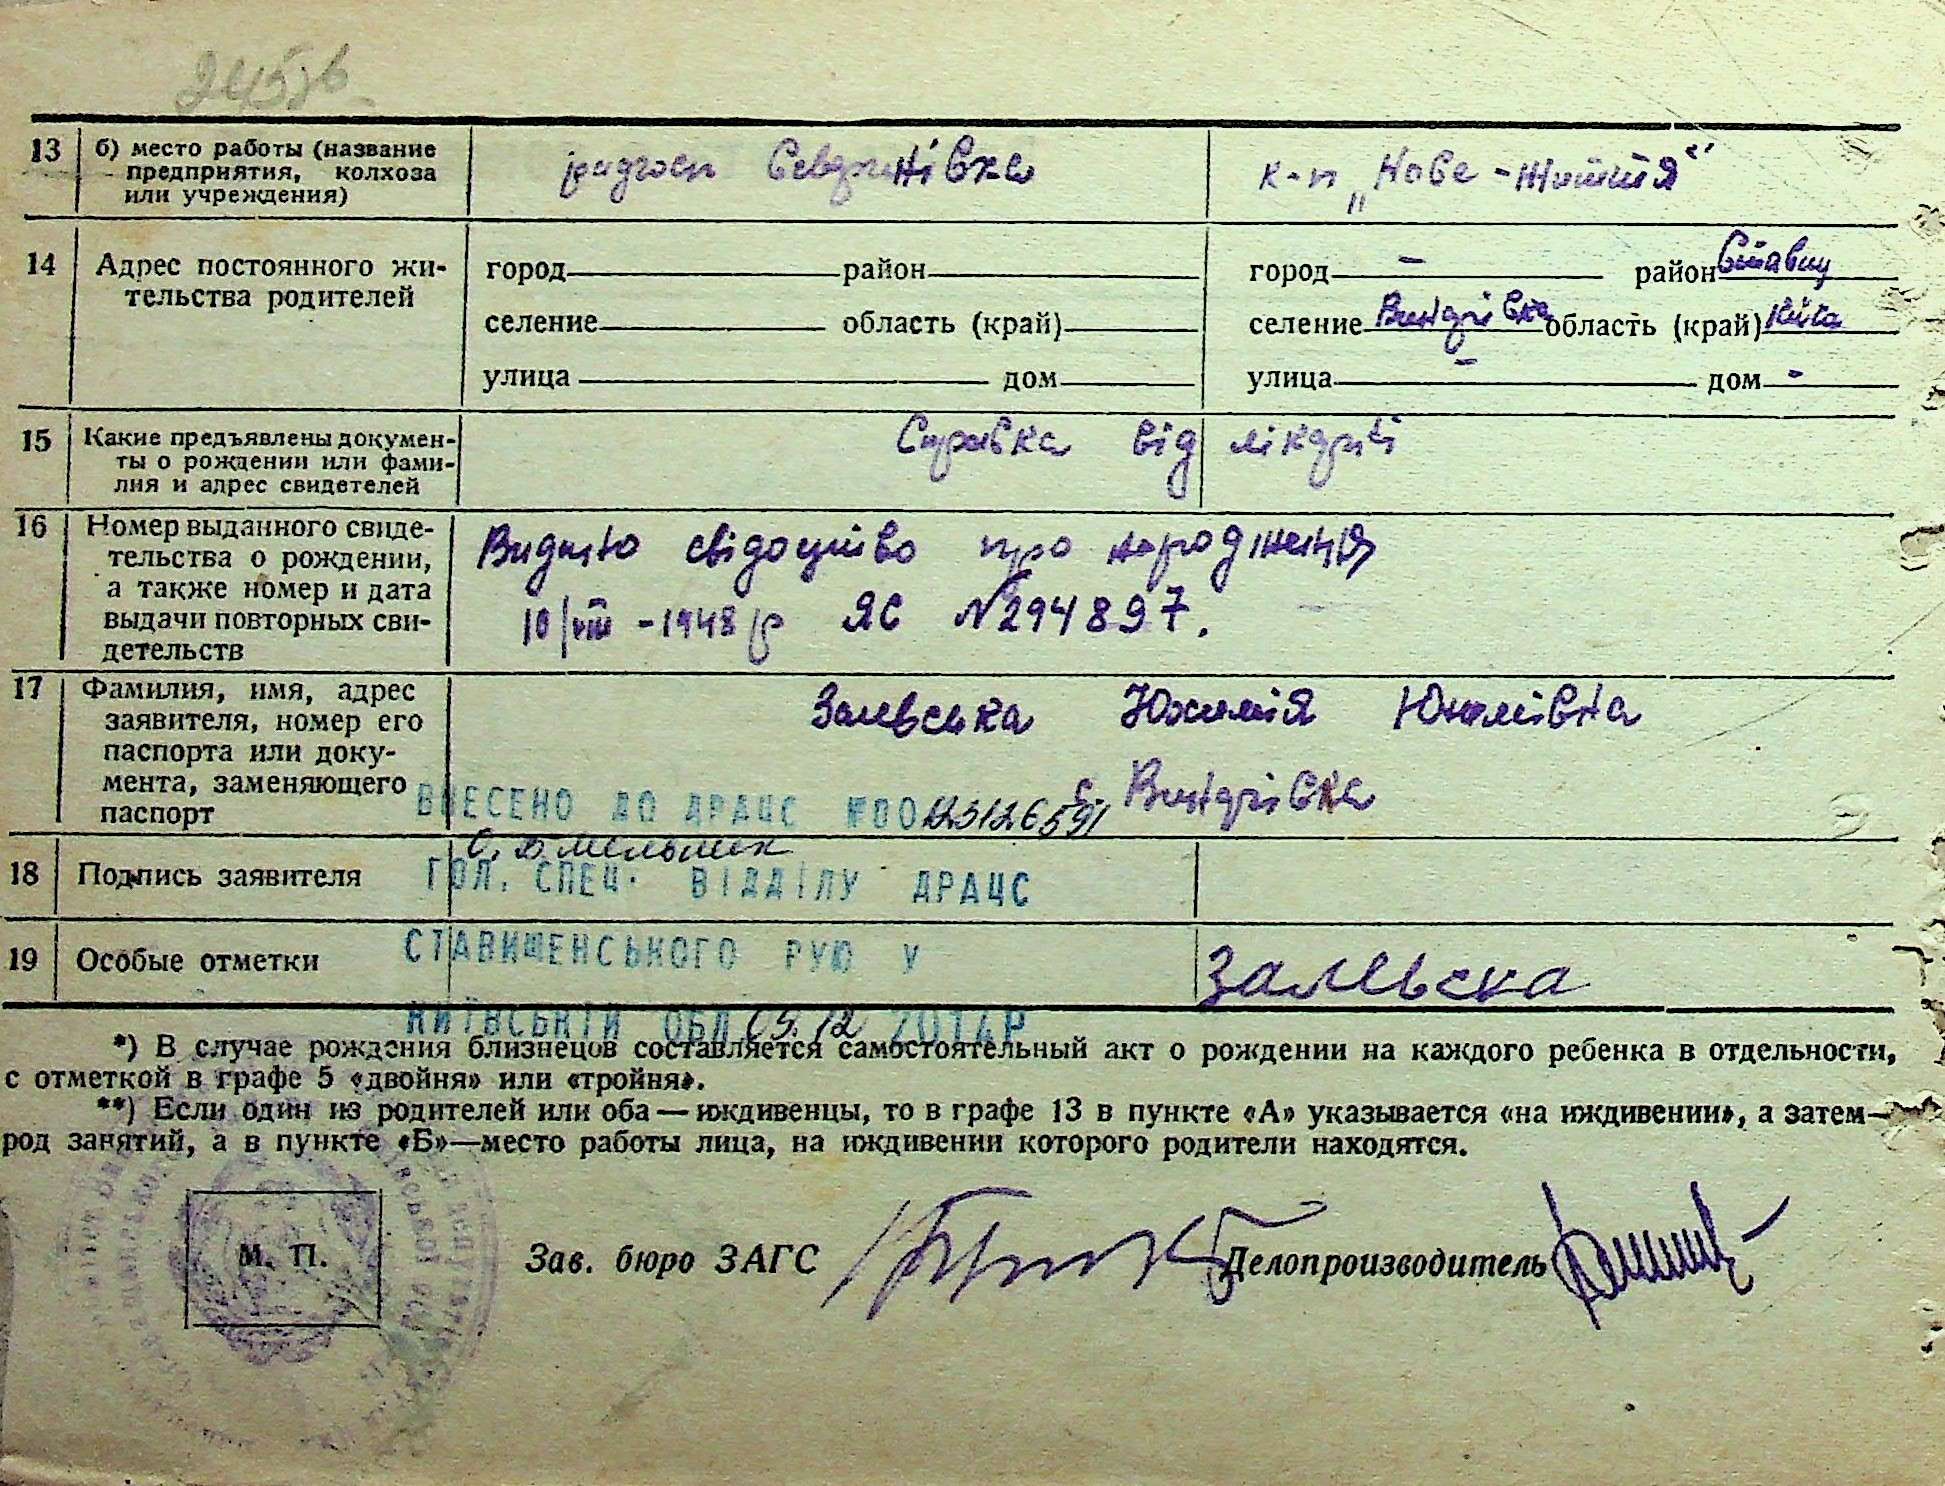 245зв
13 б) место работы (название предприятия, колхоза или учреждения) радгосп Северинівка к-п „Нове-Життя“
14 Адрес постоянного жительства родителей
город район город – район Ставищ
селение область (край) селение Винарівка область (край) Київ
улица дом улица – дом -
15 Какие предъявлены документы о рождении или фамилия и адрес свидетелей Справка від лікарні
16 Номер выданного свидетельства о рождении, а также номер и дата выдачи повторных свидетельств
Видано свідоцтво про народження
10/VIII - 1948 р ЯС №294897.
17 Фамилия, имя, адрес заявителя, номер его паспорта или документа, заменяющего паспорт
Залевська Юхимія Юхимівна
с. Винарівка
ВНЕСЕНО ДО ДРАЦС №00123126591
О. В. Мельник
18 Подпись заявителя
ГОЛ. СПЕЦ. ВІДДІЛУ ДРАЦС
19 Особые отметки
СТАВИЩЕНСЬКОГО РУЮ У
Залевска
КИЇВСЬКІЙ ОБЛ. 05.12 2014Р
*) В случае рождения близнецов составляется самостоятельный акт о рождении на каждого ребенка в отдельности,
с отметкой в графе 5 «двойня» или «тройня».
**) Если один из родителей или оба — иждивенцы, то в графе 13 в пункте «А» указывается «на иждивении», а затем—
род занятий, а в пункте «Б»—место работы лица, на иждивении которого родители находятся.
М. П. Зав. бюро ЗАГС Делопроизводитель